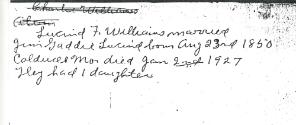 Charles Williams
Lucind F. Williams married
Jim Gaddie Lucind born Aug 23rd 1850
Caldwell Mo died Jan 2nd 1927
They had 1 daughter